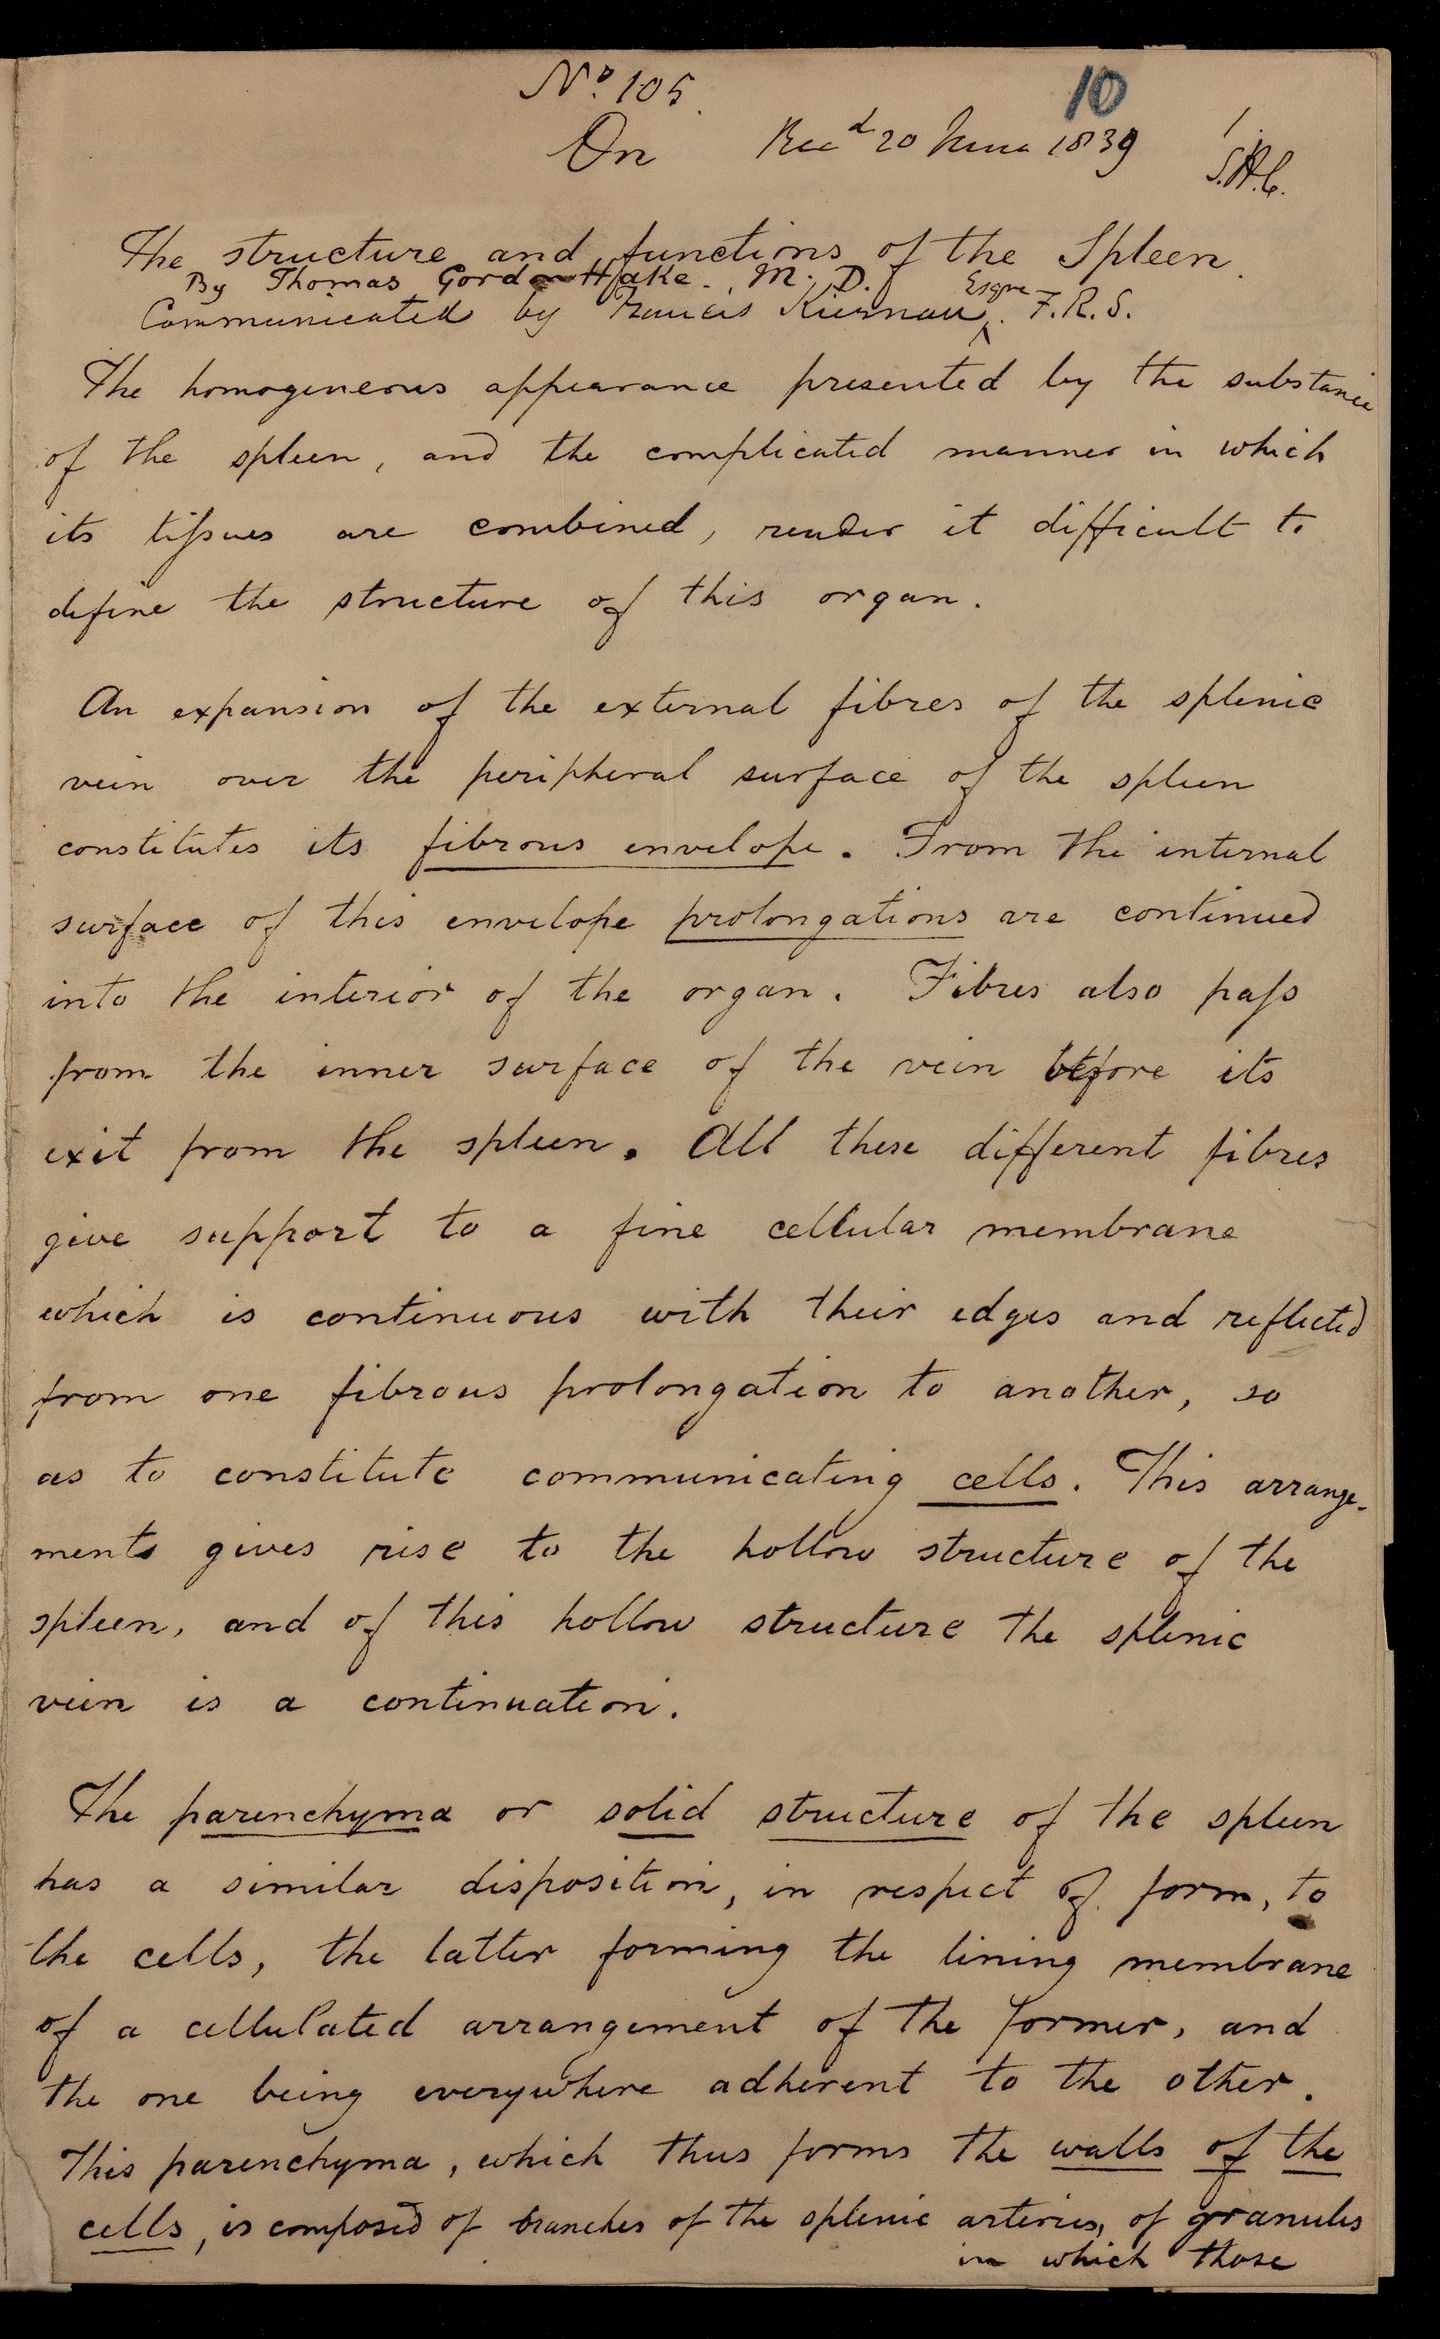 No. 105
10
On Recd 20 June 1839
1.
S.H.C.
The structure and functions of the Spleen.
By Thomas Gordon Hake. M. D.
Communicated by Francis Kiernan Esqre F.R.S.
The homogeneous appearance presented by the substance
of the spleen, and the complicated manner in which
its tiſsues are combined, render it difficult to
define the structure of this organ.
An expansion of the external fibres of the splenic
vein over the peripheral surface of the spleen
constitutes its fibrous envelope. From the internal
surface of this envelope prolongations are continued
into the interior of the organ. Fibres also paſs
from the inner surface of the vein before its
exit from the spleen. All these different fibres
give support to a fine cellular membrane
which is continuous with their edges and reflected
from one fibrous prolongation to another, so
as to constitute communicating cells. This arrange-
ments gives rise to the hollow structure of the
spleen, and of this hollow structure the splenic
vein is a continuation.
The parenchyma or solid structure of the spleen
has a similar disposition, in respect of form, to
the cells, the latter forming the lining membrane
of a cellulated arrangement of the former, and
the one being everywhere adherent to the other.
This parenchyma, which thus forms the walls of the
cells, is composed of branches of the splenic arteries, of granules
in which those